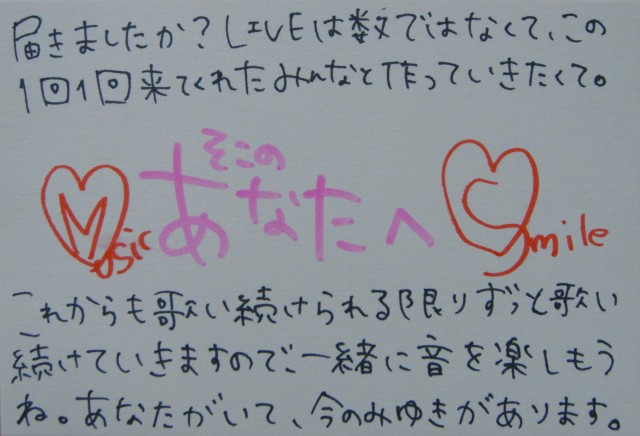 届きましたか?LIVEは数ではなくて、この
1回1回来てくれたみんなと作っていきたくて。
そこの
Music あなたへ Smile
これからも歌い続けられる限りずっと歌い
続けていきますので、一緒に音を楽しもう
ね。あなたがいて、今のみゆきがあります。